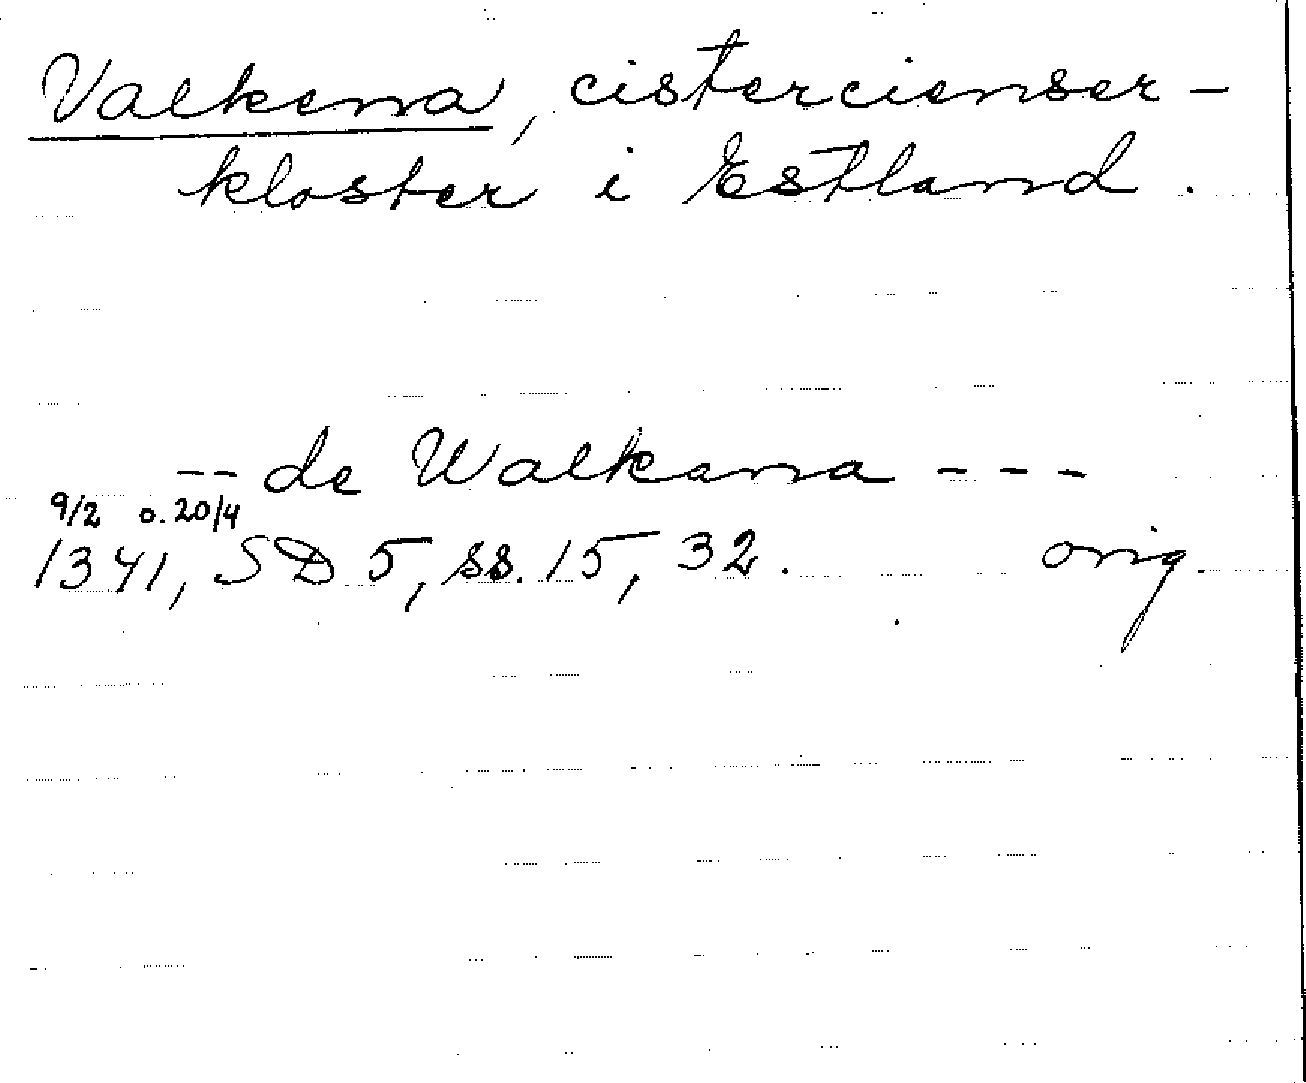 Valkena, cistercienser-
kloster i Estland.
-- de Walkana ---
9/2 o. 20/4
1341, SD 5, ss. 15, 32. orig.